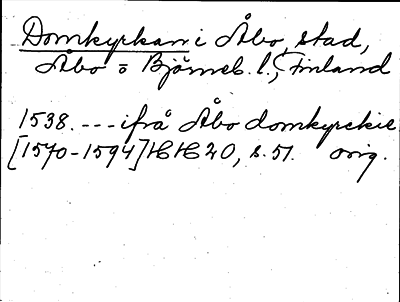 Domkyrkan i Åbo, stad,
Åbo o Björneb. l., Finland
1538. --- ifrå Åbo domkyrckie
[1570-1594] HH 20, s. 51. orig.